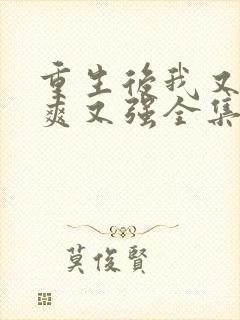 重生後我又
爽又强全集
莫俊賢